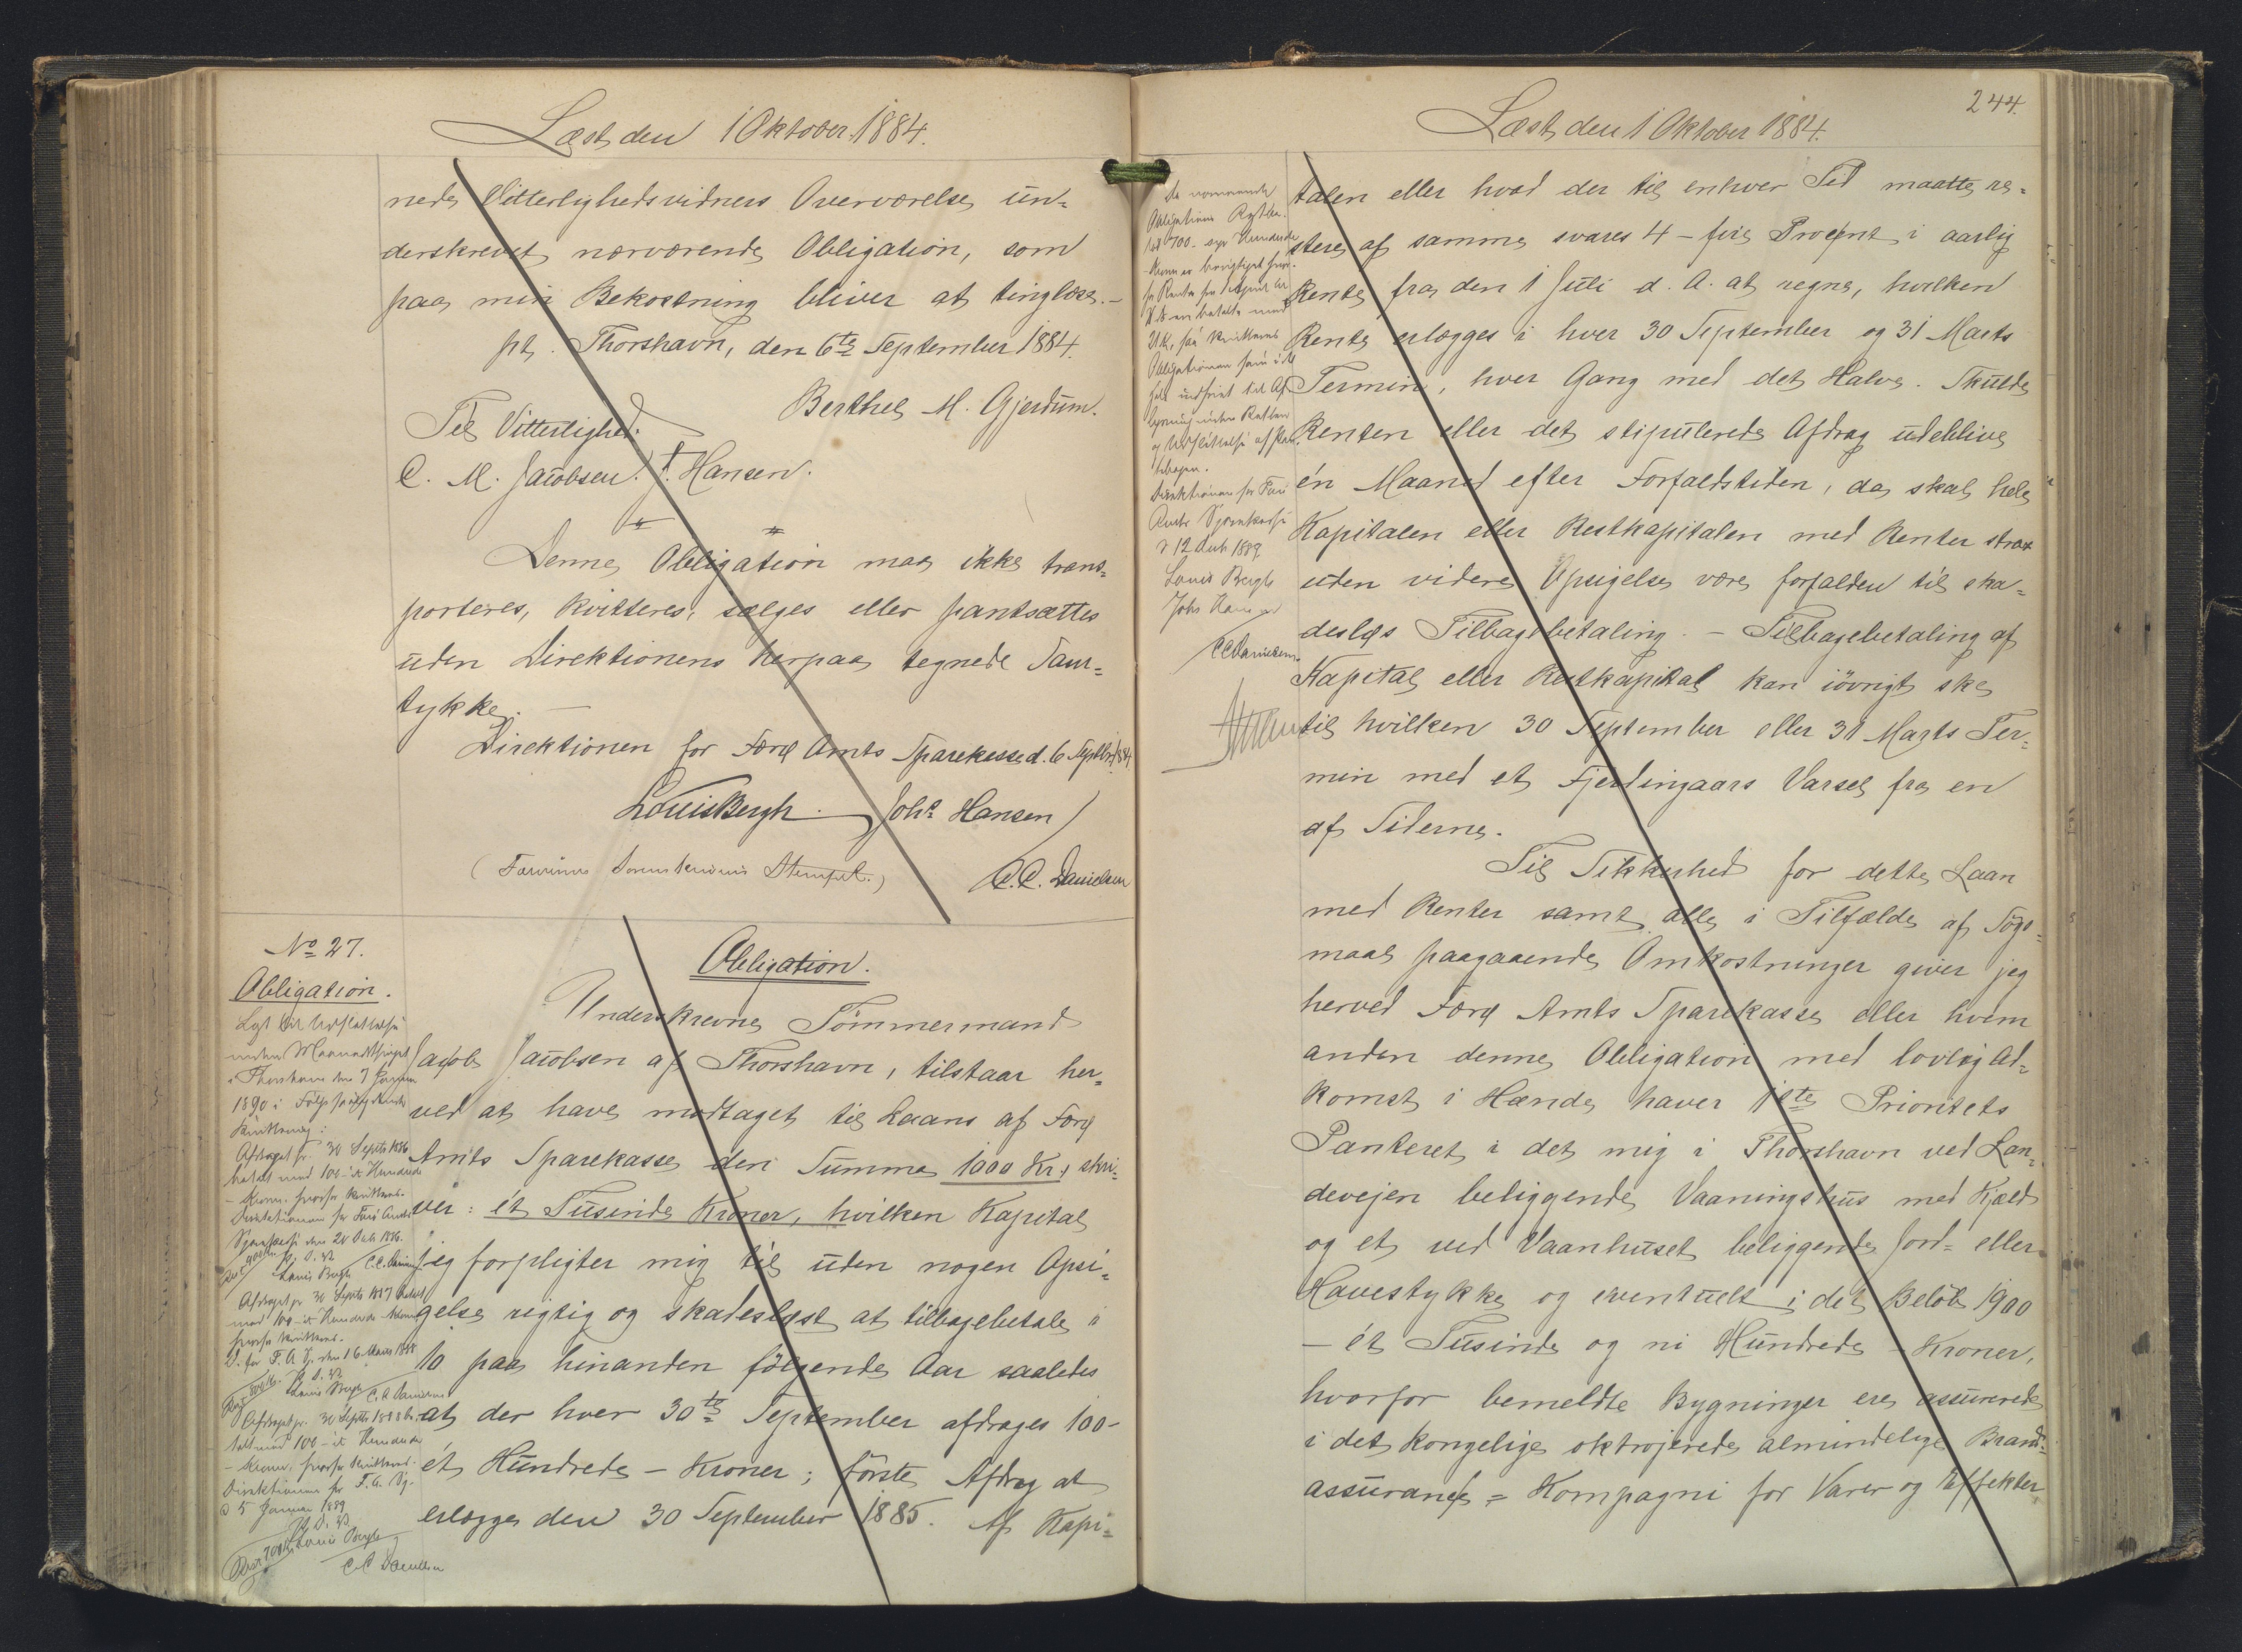 Læst den 1 Oktober 1884.
nede Vitterlighedsvidners Overværelse un-
derskrevet nærværende Obligation, som
paa min Bekostning bliver at tinglæse.-
pt. Thorshavn, den 6te September 1884.
Berthel M. Gjerdum.
Til Vitterlighed.
C. M. Jacobsen. J. Hansen.
Denne Obligation maa ikke trans-
porteres, kvitteres, sælges eller pantsættes
uden Direktionens herpaa tegnede Sam-
tykke. -
Direktionen for Færø Amts Sparekasse d. 6 Septbr 1884
Louis Bergh. Johs Hansen
C.C. Danielsen
No 27.
Obligation.
Obligation.
Underskrevne Tømmermand
Jacob Jacobsen af Thorshavn, tilstaar her-
ved at have modtaget til Laans af Færø
Amts Sparekasse den Summa 1000 Kr., skri-
ver: ét Tusinde Kroner, hvilken Kapital
jeg forpligter mig til uden nogen Opsi-
gelse rigtig og skadesløst at tilbagebetale i
10 paa hinanden følgende Aar saaledes
at der hver 30te September afdrages 100-
ét Hundrede - Kroner; første Afdrag at
erlægges den 30 September 1885. Af Kapi-
Lyst til Udslettelse
i Thorshavn den 7
1890 i Følge
Kvittering:
Afdraget pr. 30 Septb 1886
betalt med 100 - ét Hundrede
- Kroner, hvorfor kvitteres.
Direktionen for Færø Amts
Sparekasse den 20 1886.
Louis Bergh C.C. Danielsen
Afdraget pr 30 Septb 1887 betalt
med 100 - ét Hundrede - Kroner
hvorfor kvitteres.
D. for F. A. Sp. den 16 Marts 1888
Louis Bergh C. C. Danielsen
Afdraget pr. 30 Septb 1888 be-
talt med 100 - ét Hundrede
- Kroner, hvorfor kvitteres.
Direktionen for F. A. Sp.
d 5 Januar 1889
Louis Bergh
C.C. Danielsen
244.
Læst den 1 Oktober 1884.
talen eller hvad der til enhver Tid maatte re-
stere af samme svares 4 - fire Procent i aarlig
Rente fra den 1 Juli d. A. at regne, hvilken
Rente erlægges i hver 30 September og 31 Marts
Termin, hver Gang med det Halve. Skulde
Renten eller det stipulerede Afdrag udeblive
én Maaned efter Forfaldstiden, da skal hele
Kapitalen eller Restkapitalen med Renter strax
uden videre Opsigelse være forfalden til ska-
desløs Tilbagebetaling. - Tilbagebetaling af
Kapital eller Restkapital kan iøvrigt ske
til hvilken 30 September eller 31 Marts Ter-
min med et Fjerdingaars Varsel fra en
af Siderne.
Til Sikkerhed for dette Laan
med Renter samt alle i Tilfælde af Søgs-
maal paagaaende Omkostninger giver jeg
herved Færø Amts Sparekasse eller hvem
anden denne Obligation med lovlig Ad-
komst i Hænde haver 1ste Prioritets
Panteret i det mig i Thorshavn ved Lan-
devejen beliggende Vaaningshus med Kjæld.
og et ved Vaanhuset beliggende Jord- eller
Havestykke og eventuelt i det Beløb 1900
- ét Tusinde og ni Hundrede - Kroner,
hvorfor bemeldte Bygninger ere assurerede
i det kongelige oktrojerede almindelige Brand-
assurance = Kompagni for Varer og Effekter
Direktionen for Færø
Amts Sparekasse
d 12 1889
Louis Bergh
Johs Hansen
C.C. Danielsen.